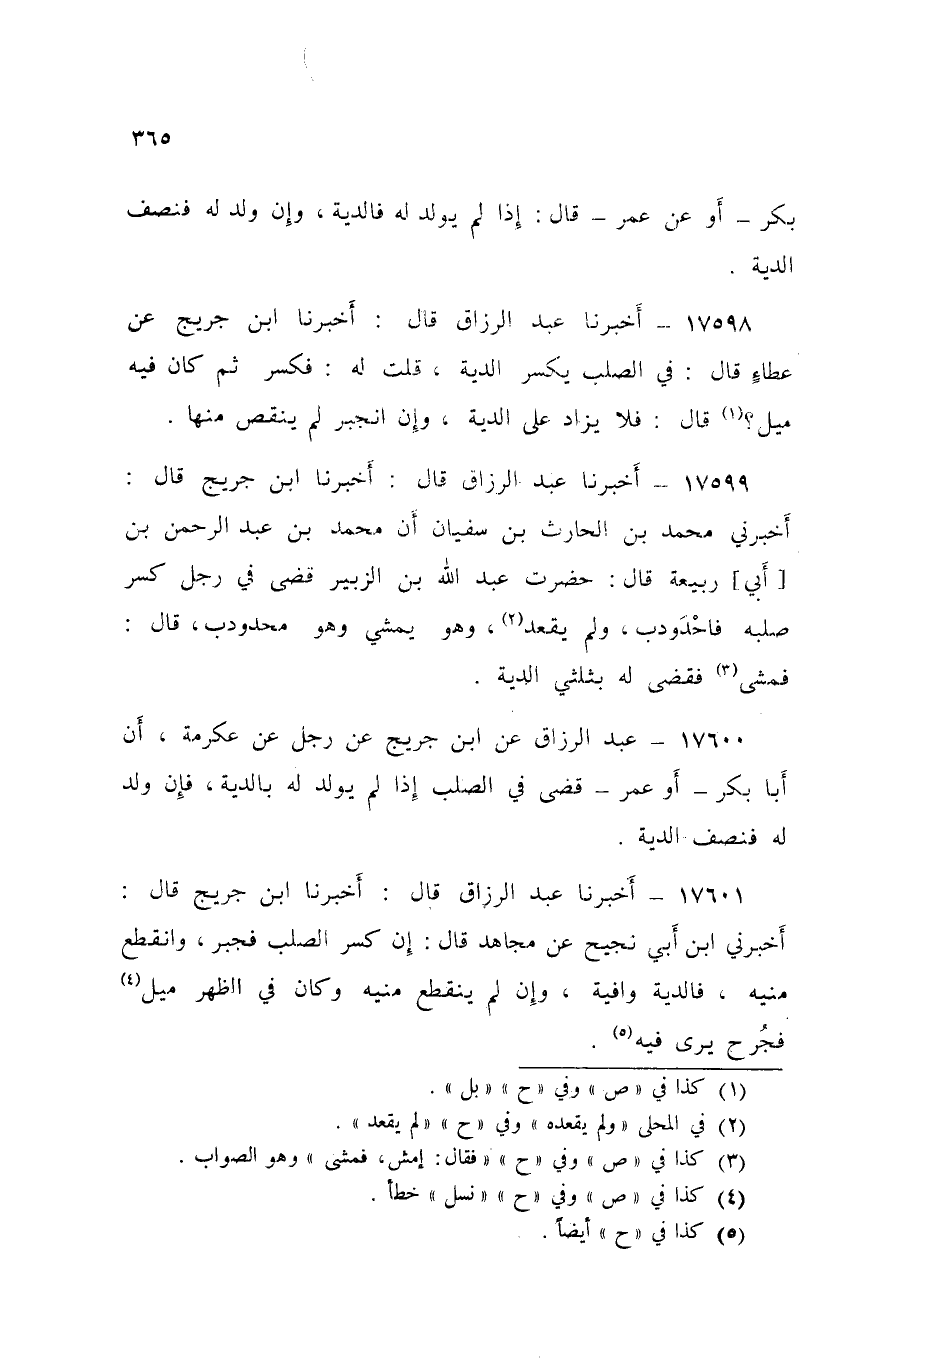 ٣٦٥
بكر ــ أو عن عمر ــ قال : إذا لم يولد له فالدية ، وإن ولد له فنصف
الدية .
١٧٥٩٨ ــ أخبرنا عبد الرزاق قال : أخبرنا ابن جريج عن
عطاءٍ قال : في الصلب يكسر الدية ، قلت له : فكسر ثم كان فيه
ميل؟(١) قال : فلا يزاد على الدية ، وإن انجبر لم ينقص منها .
١٧٥٩٩ ــ أخبرنا عبد الرزاق قال : أخبرنا ابن جريج قال :
أخبرني محمد بن الحارث بن سفيان أن محمد بن عبد الرحمن بن
[ أبي] ربيعة قال : حضرت عبد الله بن الزبير قضى في رجل كسر
صلبه فاحْدَودب ، ولم يقعد(٢) ، وهو يمشي وهو محدودب ، قال :
فمشى(٣) فقضى له بثلثي الدية .
١٧٦٠٠ ــ عبد الرزاق عن ابن جريج عن رجل عن عكرمة ، أن
أبا بكر ــ أو عمر ــ قضى في الصلب إذا لم يولد له بالدية ، فإن ولد
له فنصف الدية .
١٧٦٠١ ــ أخبرنا عبد الرزاق قال : أخبرنا ابن جريج قال :
أخبرني ابن أبي نجيح عن مجاهد قال : إن كسر الصلب فجبر ، وانقطع
منيه ، فالدية وافية ، وإن لم ينقطع منيه وكان في الظهر ميل(٤)
فجُرح يرى فيه(٥) .
(١) كذا في « ص » وفي « ح » « بل » .
(٢) في المحلى « ولم يقعده » وفي « ح » « لم يقعد » .
(٣) كذا في « ص » وفي « ح » « فقال : إمش، فمشى » وهو الصواب .
(٤) كذا في « ص » وفي « ح » « نسل » خطأ .
(٥) كذا في « ح » أيضاً .